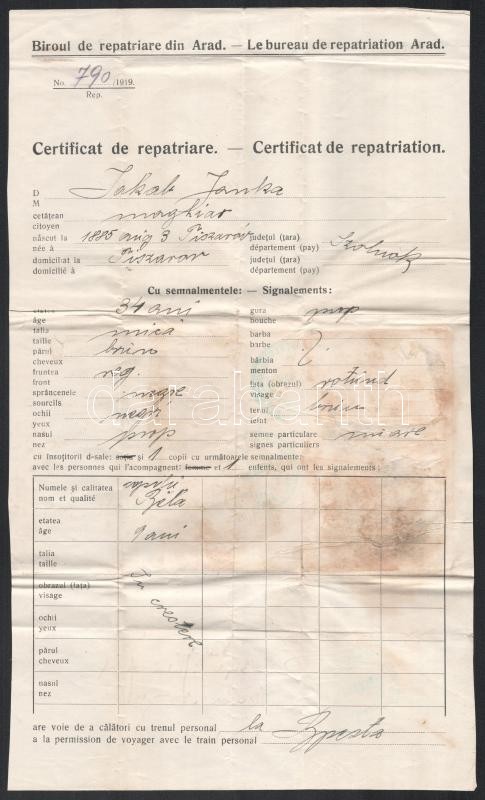 Biroul de repatriare din Arad. — Le bureau de repatriation Arad.
No. 790 /1919.
Rep.
Certificat de repatriare. — Certificat de repatriation.
D
M Jakab Janka
cetățean
citoyen maghiar
născut la
née à 1885 aug 3 Tiszarov
județul (țara)
département (pay) Szolnok
domiciliat la
domicilié à Tiszarov
județul (țara)
département (pay)
Cu semnalmentele: — Signalements:
etatea
âge 34 ani
gura
bouche prop
talia
taille mică
barba
barbe
părul
cheveux brun
bărbia
menton
fruntea
front reg.
fața (obrazul)
visage rotund
sprâncenele
sourcils negre
tenul
teint brun
ochii
yeux negri
nasul
nez prop
semne particulare
signes particuliers
cu însoțitorii d-sale: soția și 1 copii cu următoarele semnalmente:
avec les personnes qui l'acompagnent: femme et 1 enfants, qui ont les signalements:
Numele și calitatea
nom et qualité Béla
etatea
âge 9 ani
talia
taille
obrazul (fața)
visage
In crestere
ochii
yeux
părul
cheveux
nasul
nez
are voie de a călători cu trenul personal la Bpesta
a la permission de voyager avec le train personal
darabanth